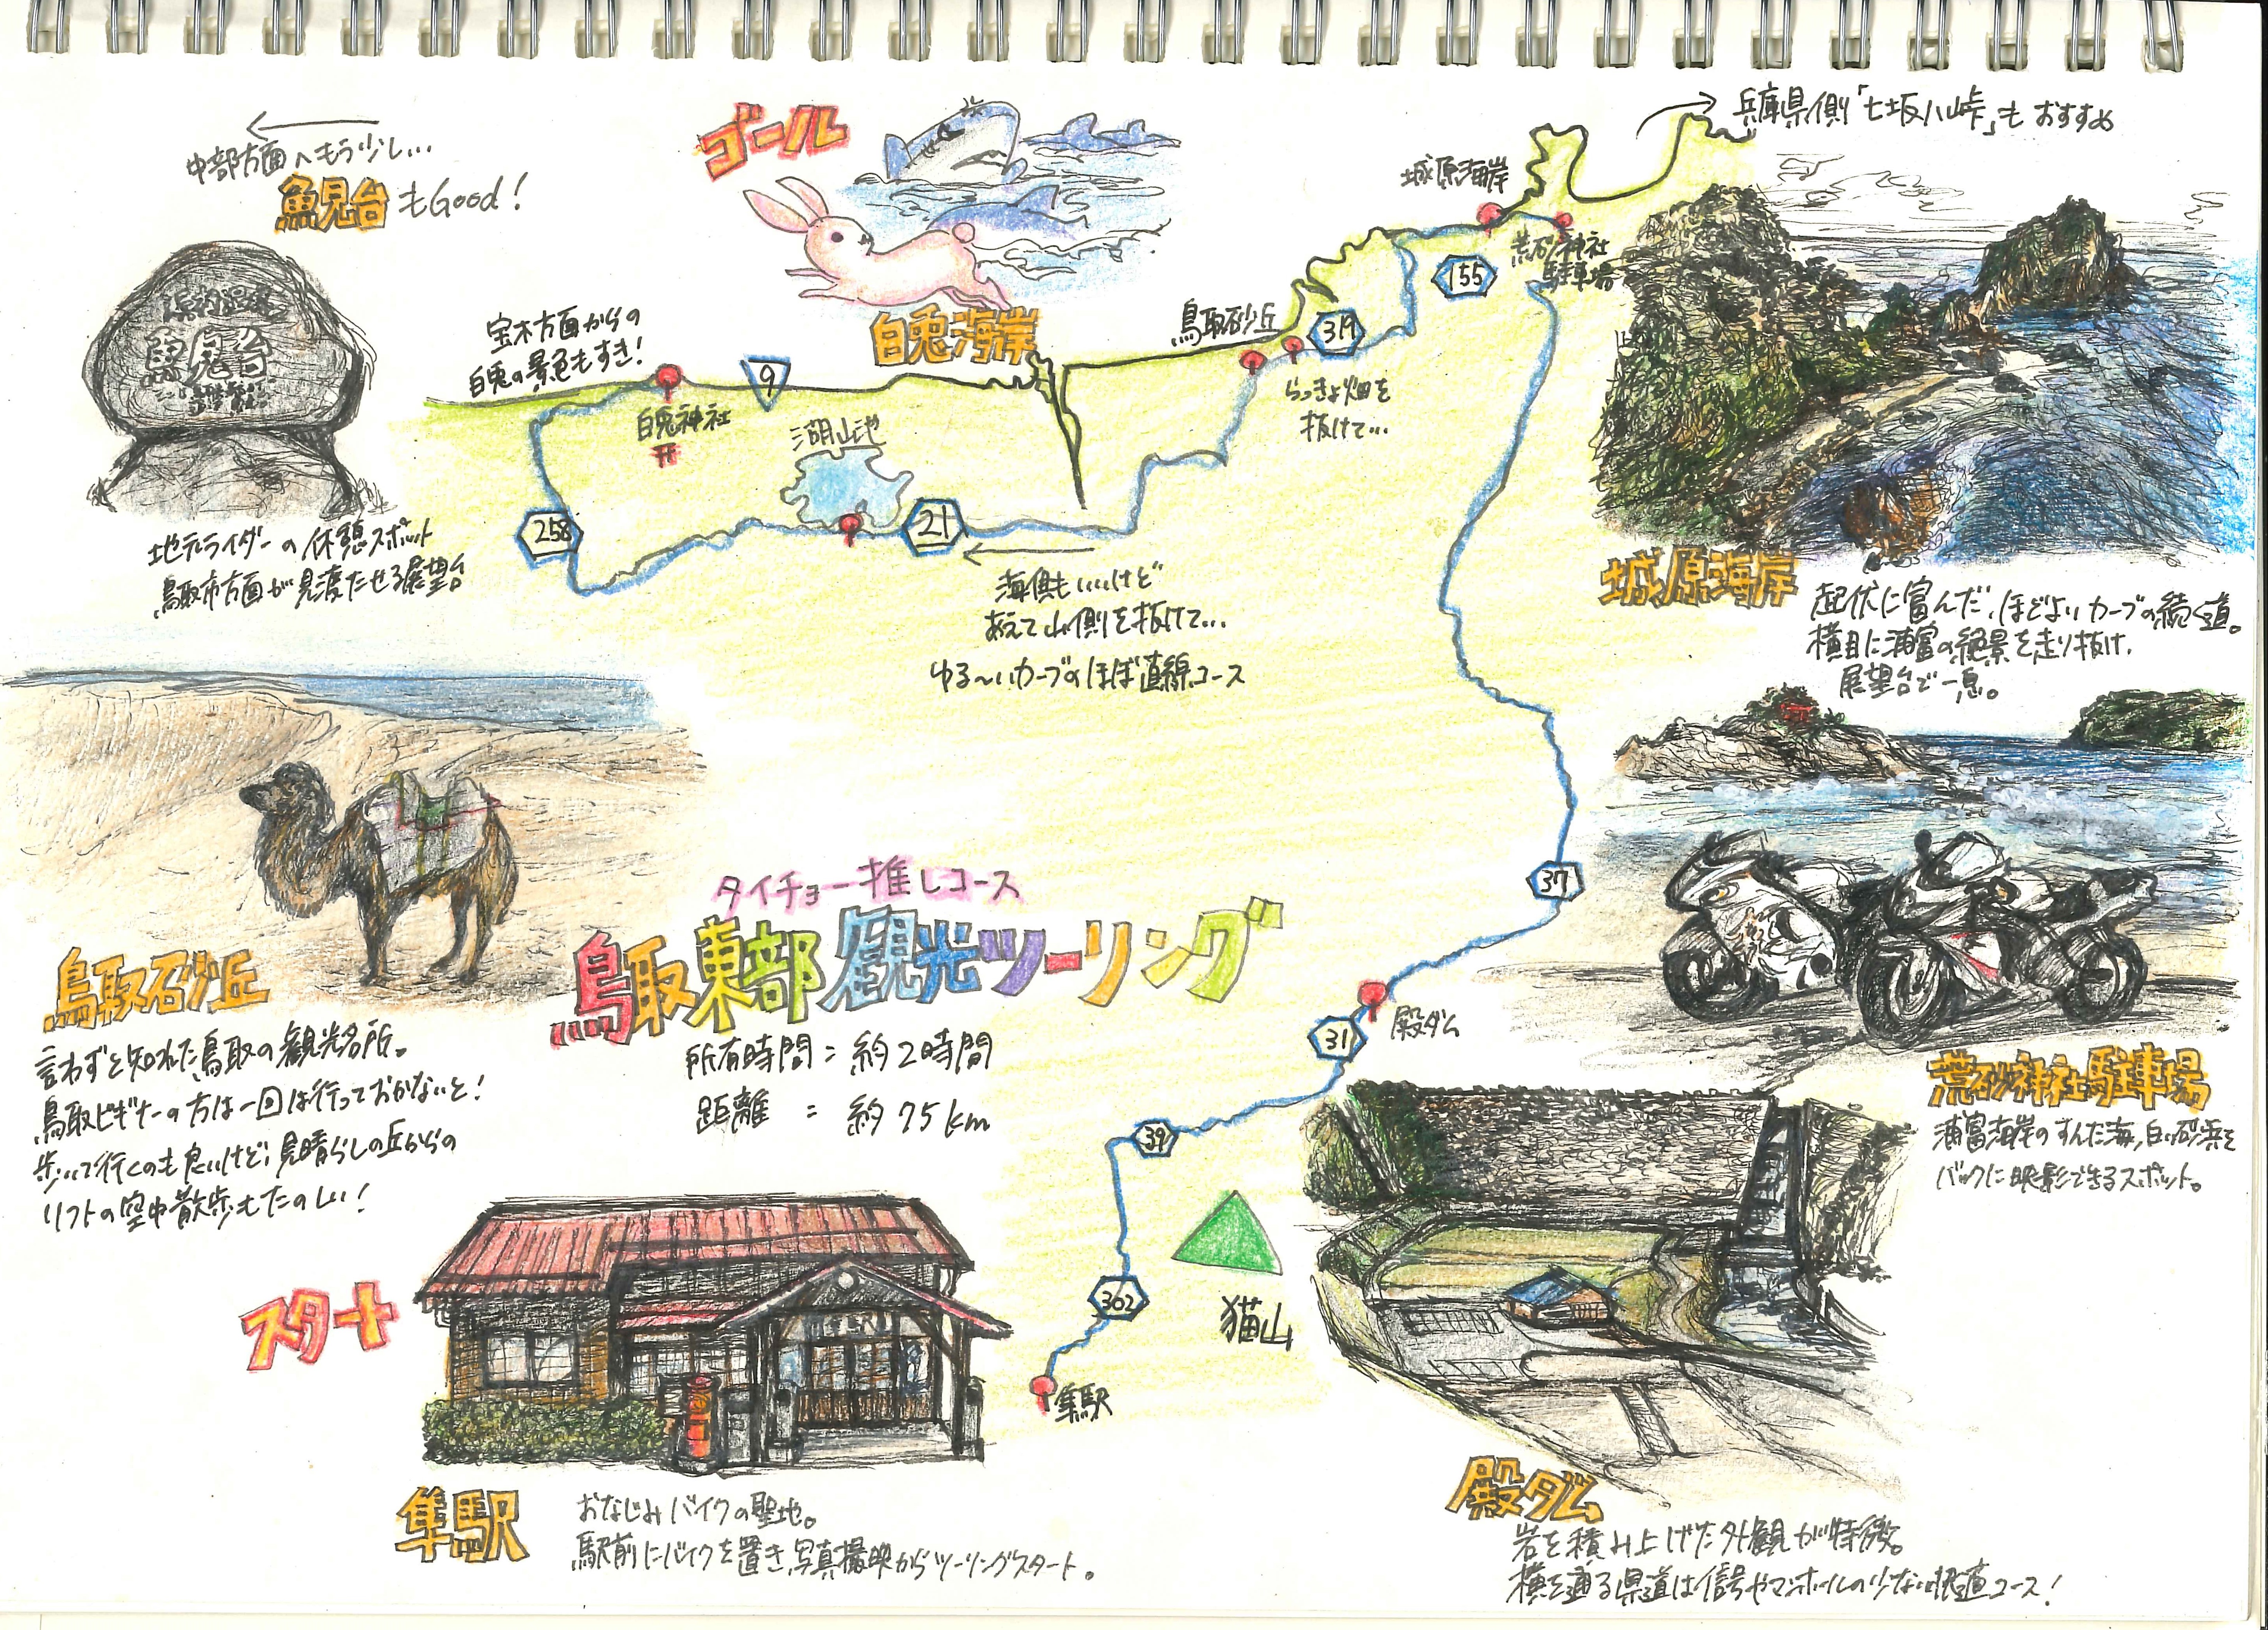 中部方面へもう少し…
魚見台もGood！
魚見台
地元ライダーの休憩スポット
鳥取市方面が見渡たせる展望台。
ゴール
白兎海岸
宝木方面からの
白兎の景色もすき！
白兎神社
9
湖山池
258
21
海側もいいけど
あえて山側を抜けて…
ゆる〜いカーブのほぼ直線コース
鳥取砂丘
319
らっきょ畑を
抜けて…
155
城原海岸
荒砂神社
駐車場
兵庫県側「七坂八峠」もおすすめ
城原海岸
起伏に富んだ、ほどよいカーブの続く道。
横目に浦富の絶景を走り抜け、
展望台で一息。
荒砂神社駐車場
浦富海岸のすんだ海、白い砂浜を
バックに映影できるスポット。
鳥取砂丘
言わずと知れた鳥取の観光名所。
鳥取ビギナーの方は一回は行っておかないと！
歩いて行くのも良いけど、見晴らしの丘からの
リフトの空中散歩もたのしい！
タイチョー推しコース
鳥取東部観光ツーリング
所有時間＝約2時間
距離＝約75km
37
殿ダム
31
39
362
猫山
隼駅
スタート
隼駅
おなじみバイクの聖地。
駅前にバイクを置き、写真撮映からツーリングスタート。
殿ダム
岩を積み上げた外観が特徴。
横を通る県道は信号やマンホールの少ない快適コース！